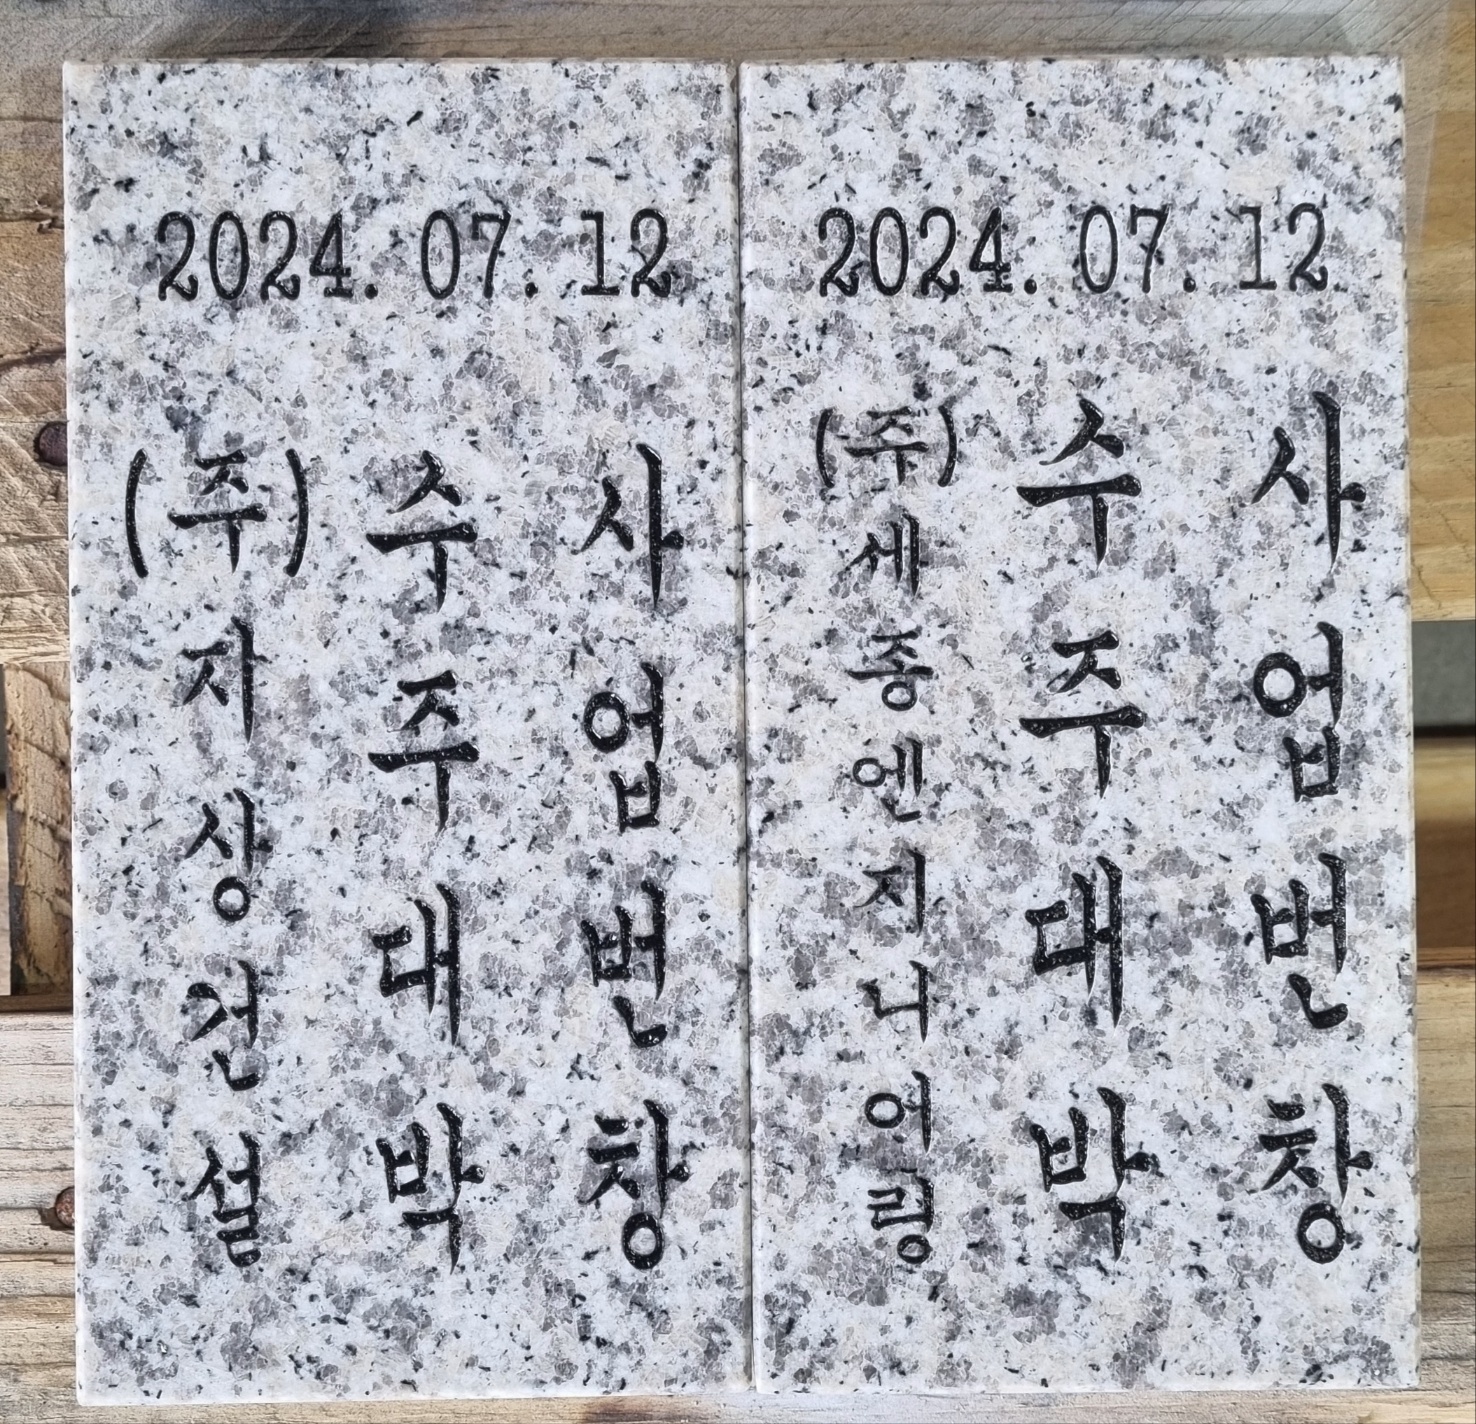 2024. 07. 12
사업번창
수주대박
(주)자상건설
2024. 07. 12
사업번창
수주대박
(주)세종엔지니어링